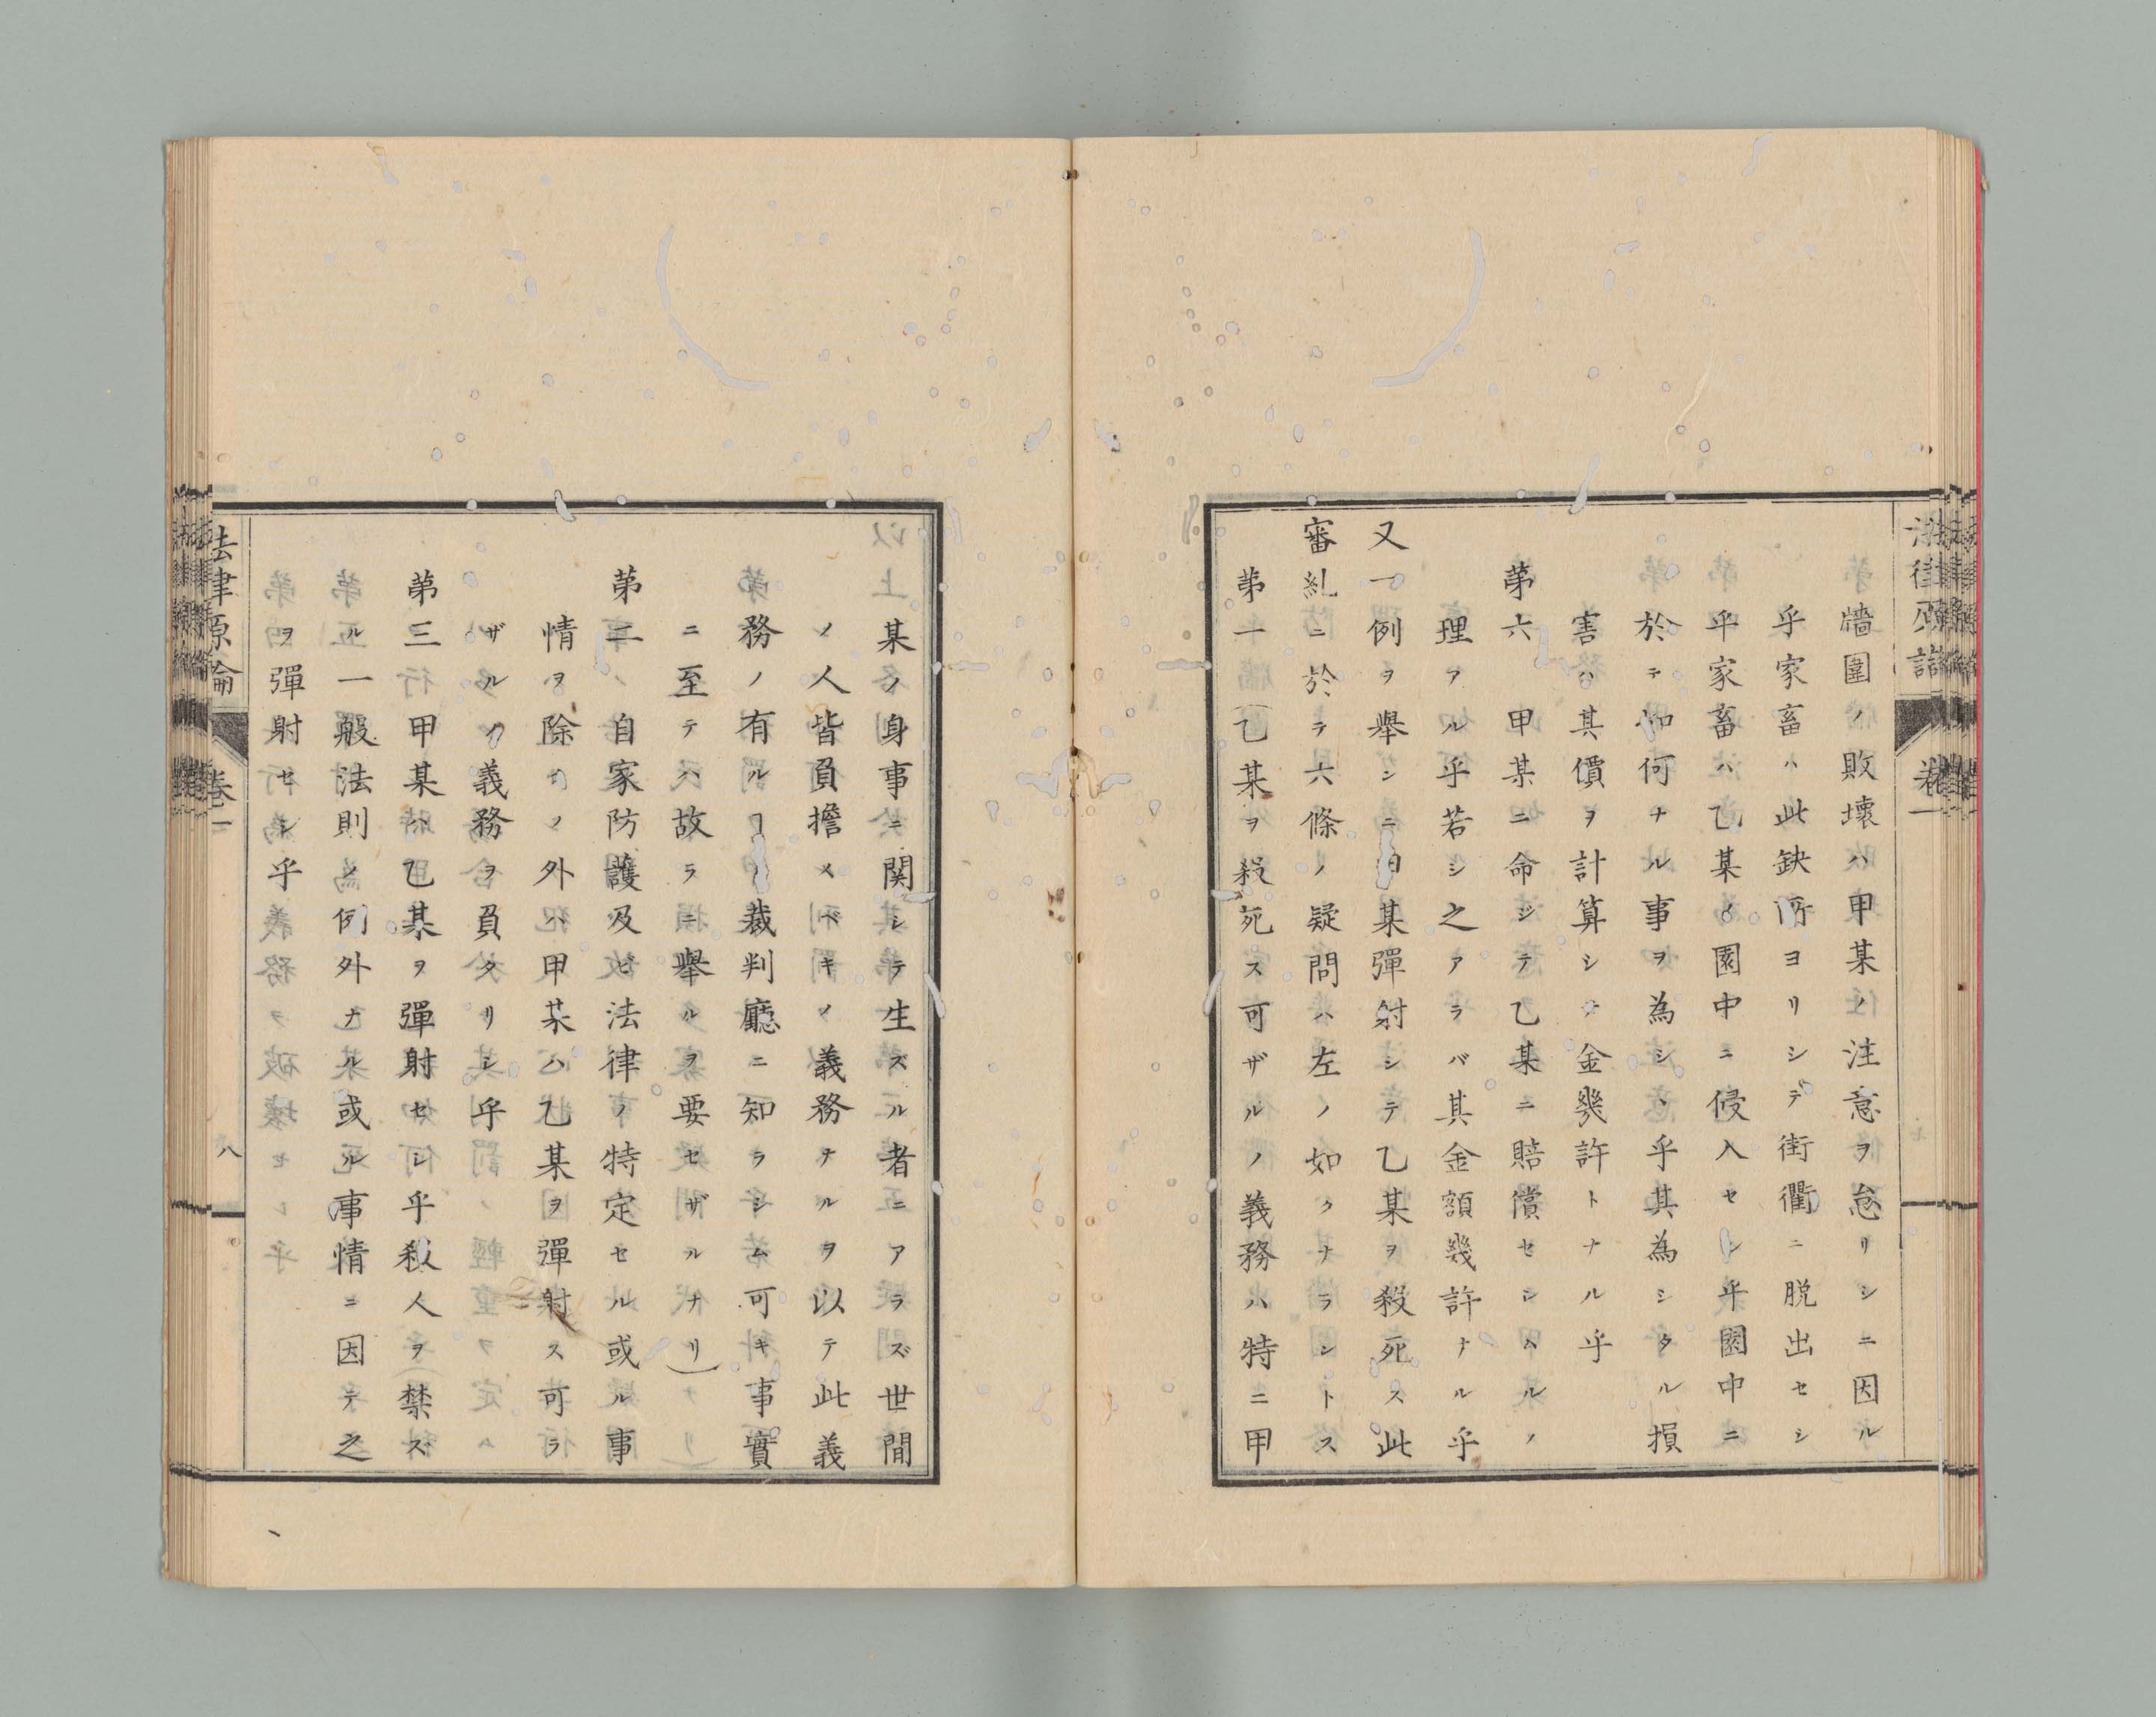 牆圍ノ敗壊ハ甲某ノ注意ヲ怠リシニ因ル
乎家畜ハ此缺所ヨリシテ街衢ニ脱出セシ
乎家畜ハ乙某ノ園中ニ侵入セシ乎園中ニ
於テ如何ナル事ヲ為シヽ乎其為シタル損
害ハ其價ヲ計算シテ金幾許トナル乎
第六 甲某ニ命シテ乙某ニ賠償セシムルノ
理アル乎若シ之アラバ其金額幾許ナル乎
又一例ヲ舉ンニ曰某彈射シテ乙某ヲ殺死ス此
審糺ニ於テ六條ノ疑問ハ左ノ如クナラントス
第一(乙某ヲ殺死ス可ザルノ義務ハ特ニ甲
法律原論 卷一
某ノ身事ニ関シテ生ズル者ニアラズ世間
ノ人皆負擔スベキノ義務ナルヲ以テ此義
務ノ有ルヿノ裁判廳ニ知ラシム可キ事實
ニ至テハ故ラニ舉ルヲ要セザルナリ)
第二 自家防護及ビ法律ノ特定セル或ル事
情ヲ除クノ外ハ甲某ハ乙某ヲ彈射ス可ラ
ザルノ義務ヲ負タリシ乎
第三甲某ハ乙某ヲ彈射セシ乎殺人ヲ禁ズ
ル一般法則ノ例外ナル或ル事情ニ因テ之
ヲ彈射セシ乎
法律原論 卷一 八